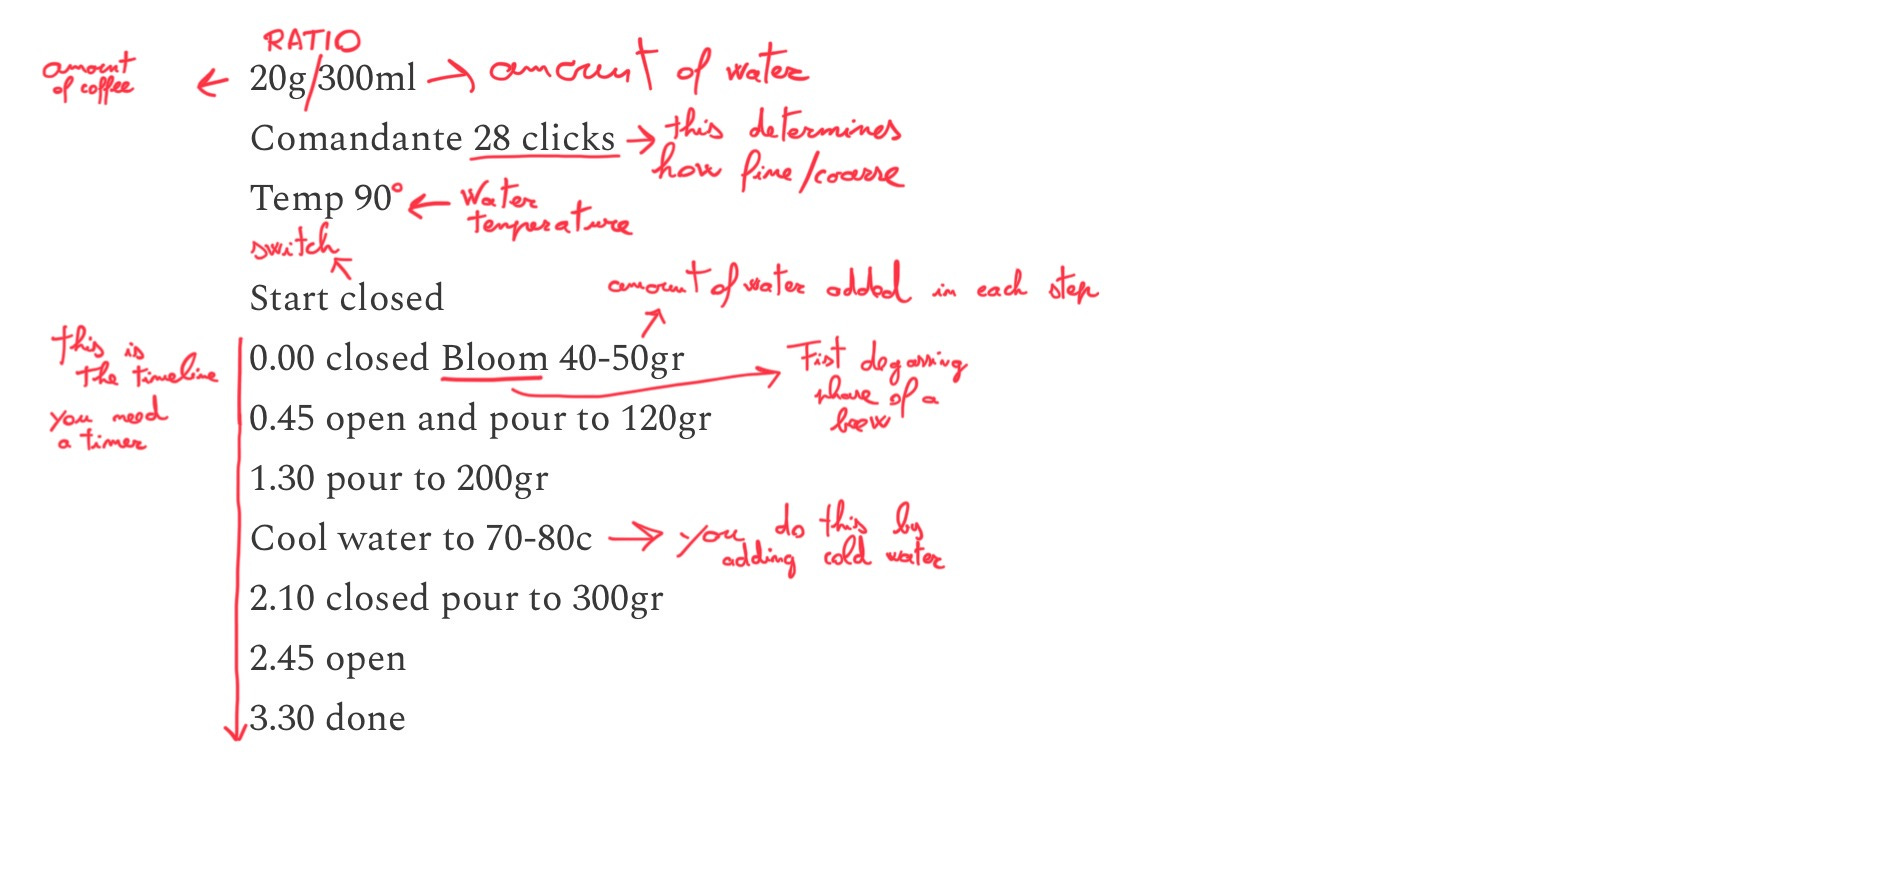 RATIO
amount
of coffee
20g/300ml
amount of water
Comandante 28 clicks
this determines
how fine/coarse
Temp 90°
Water
temperature
switch
Start closed
amount of water added in each step
this is
the timeline
you need
a timer
0.00 closed Bloom 40-50gr
First degassing
phase of a
brew
0.45 open and pour to 120gr
1.30 pour to 200gr
Cool water to 70-80c
you do this by
adding cold water
2.10 closed pour to 300gr
2.45 open
3.30 done